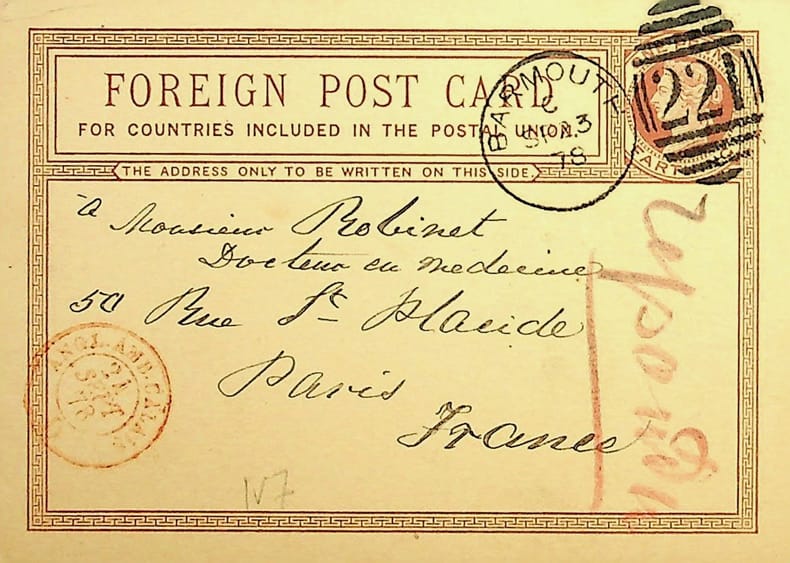 FOREIGN POST CARD
FOR COUNTRIES INCLUDED IN THE POSTAL UNION.
THE ADDRESS ONLY TO BE WRITTEN ON THIS SIDE.
BARMOUTH
C
78
221
à Monsieur Robinet
Docteur en medecine
50 Rue St. Placide
Paris
France
ANGL. AMB. CALAIS
24
SEPT
78